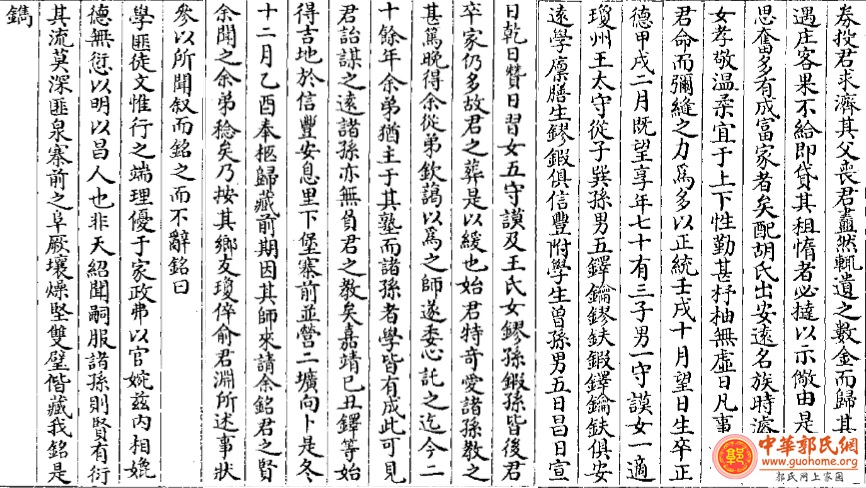 奏投君求濟其父喪君盡然輒遺之數金而歸其
遇庄客果不給即貸其租惰者必撻以示儆由是
思奮多有成富家者矣配胡氏出安遠名族時濬
女孝敬温柔宜于上下性勤甚杼柚無虛日凡事
君命而彌縫之力爲多以正統壬戌十月望日生卒正
德甲戌二月既望享年七十有三子男一守謨女一適
瓊州王太守從子巽孫男五鐸鑰鏐鈇鍜鐸鑰鈇俱安
遠學廩膳生鏐鍜俱信豐附學生曽孫男五日昌日宣
日乾日贊日習女五守謨及王氏女鏐孫鍜孫皆後君
卒家仍多故君之葬是以緩也始君特奇愛諸孫教之
甚篤晚得余從弟欽藹以爲之師遂委心託之迄今二
十餘年余弟猶主于其塾而諸孫者學皆有成此可見
君詒謀之遠諸孫亦無負君之教矣嘉靖已丑鐸等始
得吉地於信豐安息里下堡寨前並營二壙向卜是冬
十二月乙酉奉柩歸藏前期因其師來請余銘君之賢
余聞之余弟稔矣乃按其鄉友瓊倅俞君淵所述事狀
叅以所聞叙而銘之而不辭銘曰
學匪徒文惟行之端理優于家政弗以官婉兹内相媲
德無愆以明以昌人也非天紹聞嗣服諸孫則賢有衍
其流莫深匪泉寨前之阜厥壤燥堅雙璧偕藏我銘是
鐫
中華郭氏網
www.guohome.org
郭氏网上家園